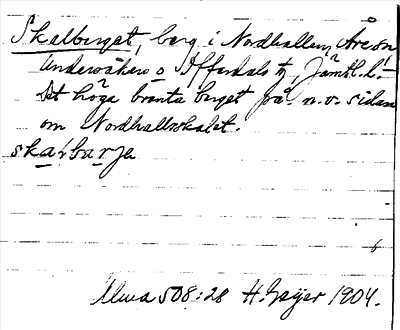 Skalberget, berg i Nordhallen, Åre sn
Undersåkers o Offerdals tg, Jämtl. l.
Det höga branta berget på n.v. sidan
om Nordhallsskalet.
skalbarje
Ulma 508:28 H. Geijer 1904.